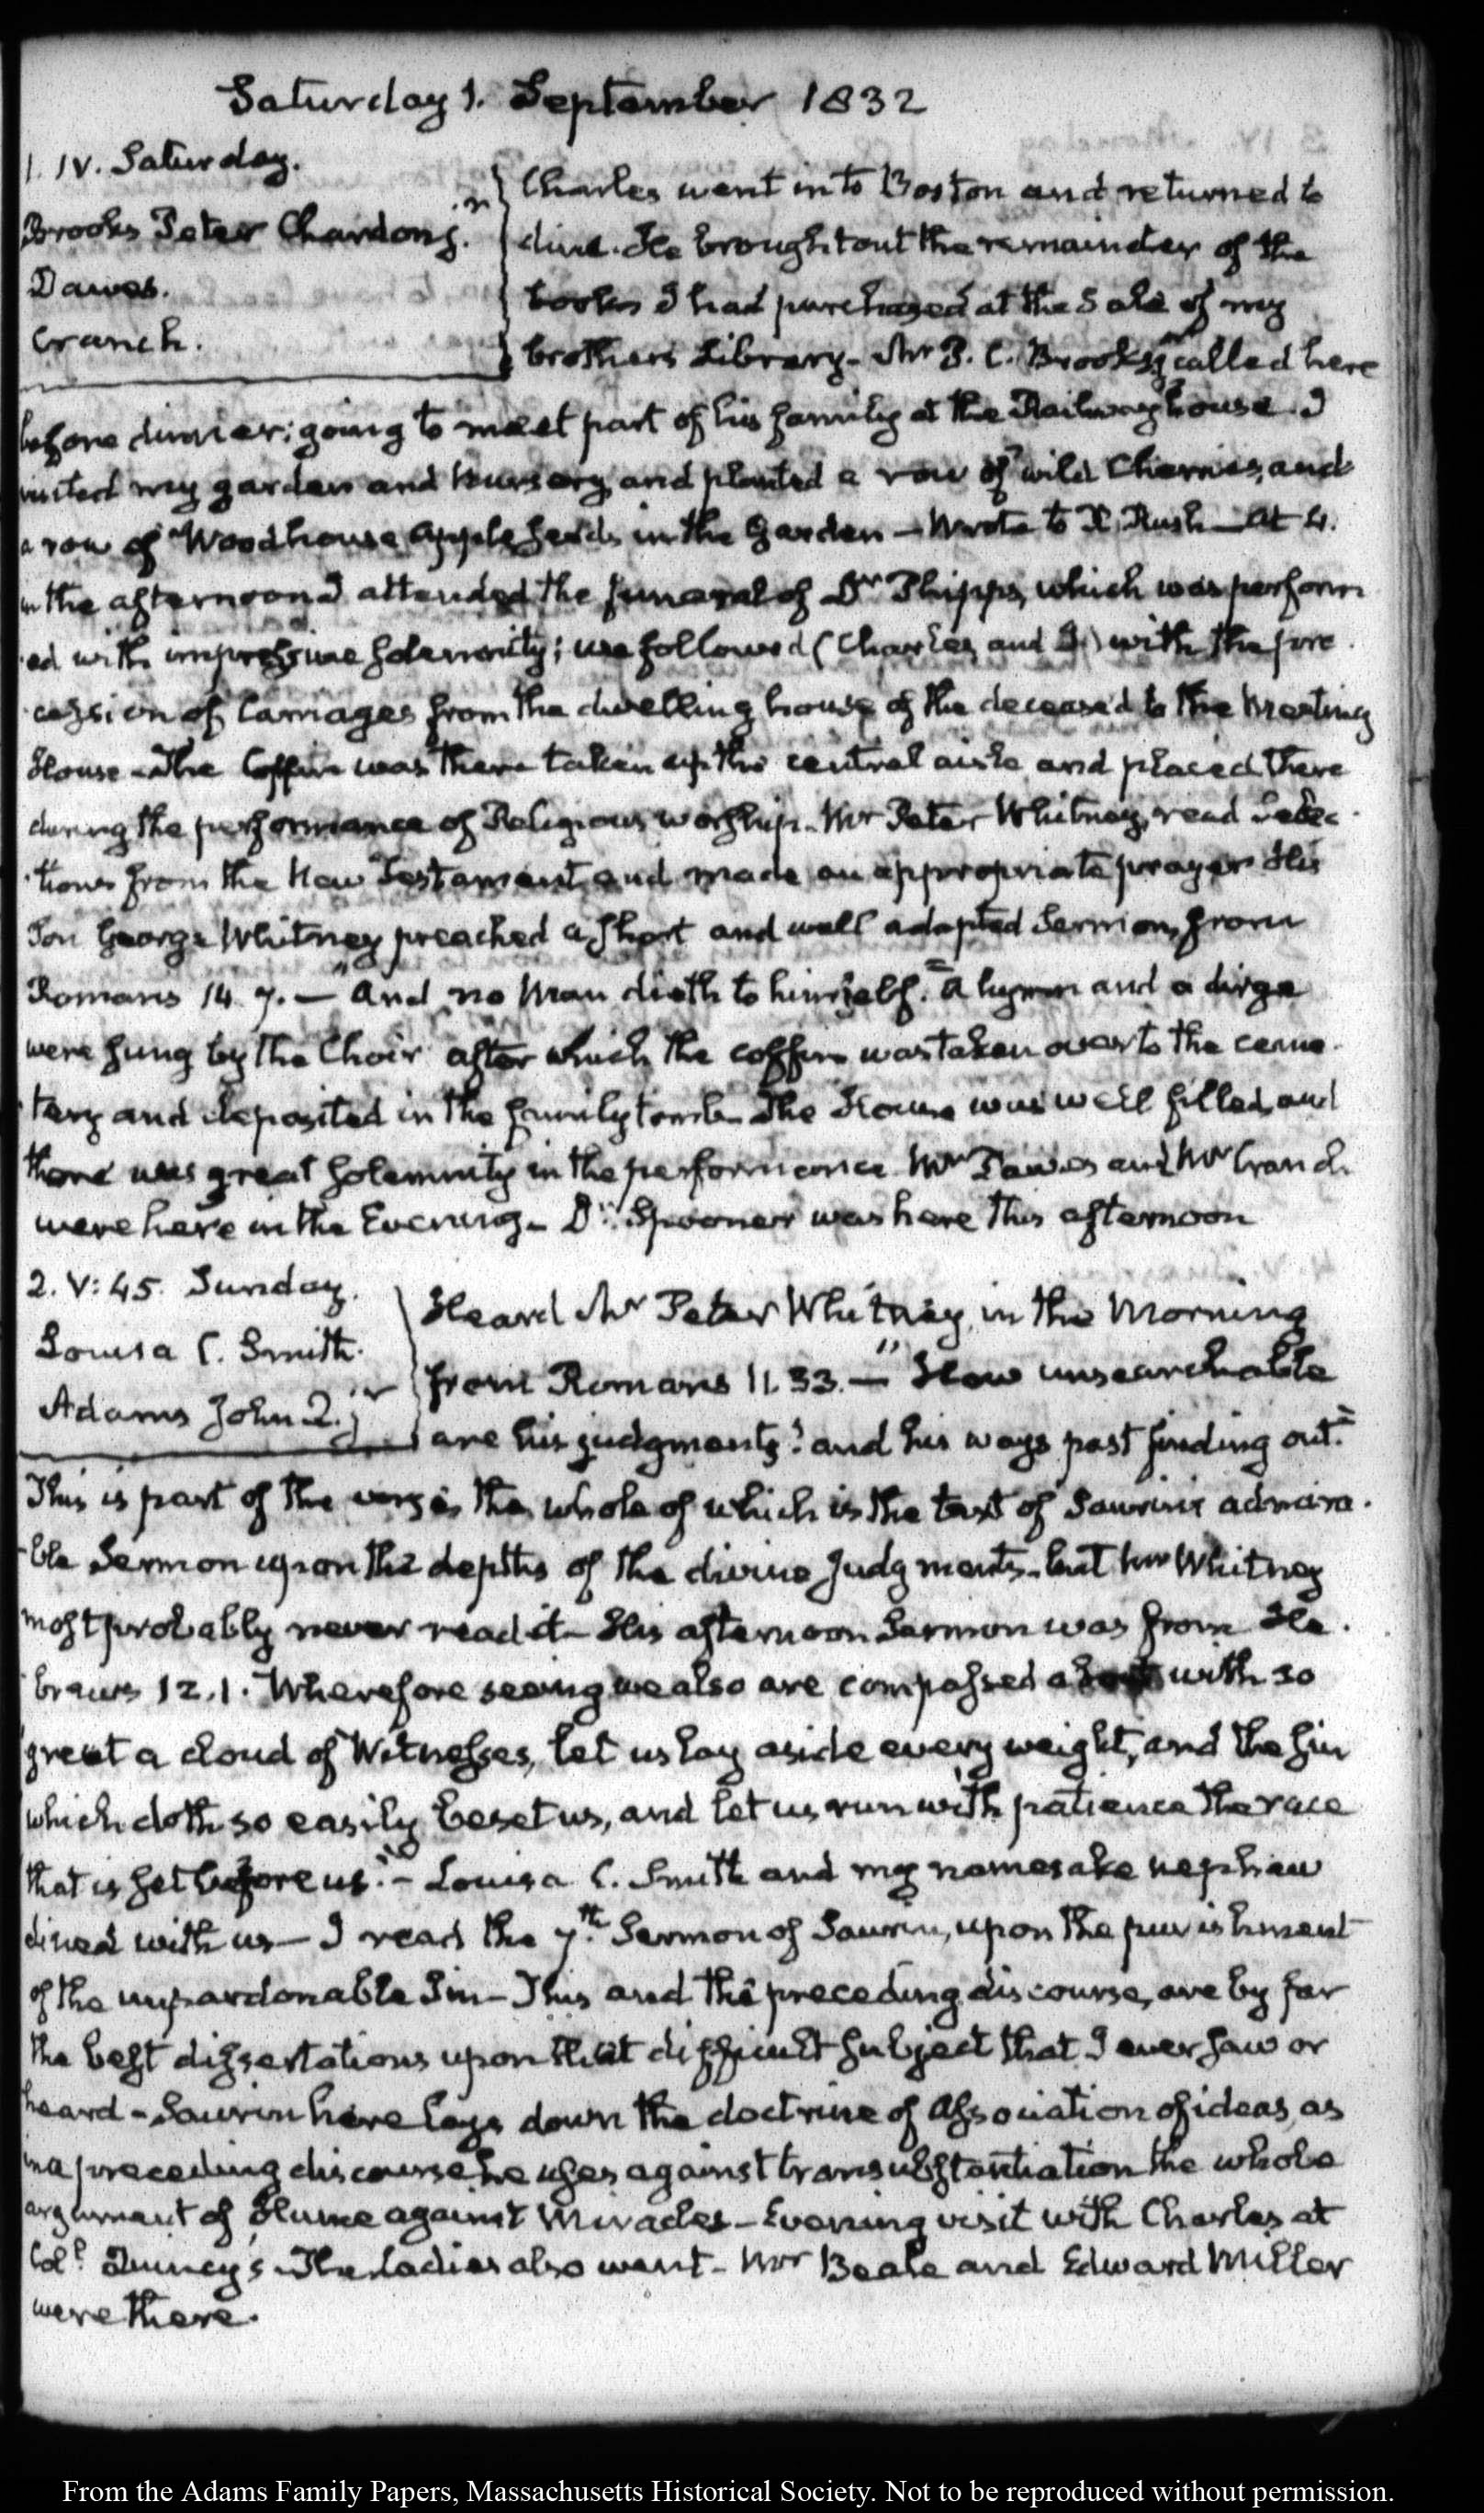 Saturday 1. September 1832
1. IV. Saturday.
Brooks Peter Chardon jr.
Dawes.
Cranch.
Charles went into Boston and returned to
dine. He brought out the remainder of the
books I had purchased at the Sale of my
brothers Library - Mr P. C. Brooks jr called here
before dinner; going to meet part of his family at the Railway house. I
visited my garden and nursery, and planted a row of wild Cherries, and
a row of Woodhouse apple seeds in the Garden - Wrote to R. Rush - At 4.
in the afternoon I attended the funeral of Dr Phipps, which was perform
ed with impressive solemnity; we followed (Charles, and I) with the pro
cession of Carriages from the dwelling house of the deceased to the Meeting
House - The Coffin was there taken up the central aisle and placed there
during the performance of Religious worship. Mr Peter Whitney, read selec
tions from the New Testament, and made an appropriate prayer His
Son George Whitney preached a short and well adapted Sermon, from
Romans 14. 7. - "And no Man dieth to himself." A hymn and a dirge
were sung by the Choir after which the coffin was taken over to the ceme
tery and deposited in the family tomb - The House was well filled, and
there was great solemnity in the performance. Mr Dawes and Mr Cranch
were here in the Evening - Dr: Spooner was here this afternoon
2. V: 45. Sunday.
Louisa C. Smith.
Adams John Q. jr
Heard Mr Peter Whitney, in the Morning
from Romans 11. 33. - "How unsearchable
are his judgments! and his ways past finding out."
This is part of the verse, the whole of which is the text of Saurin's admira
ble Sermon upon the depths of the divine Judgments - but Mr Whitney
most probably never read it - His afternoon Sermon was from He
brews 12. 1. Wherefore seeing we also are compassed about with so
great a cloud of Witnesses, let us lay aside every weight, and the sin
which doth so easily beset us, and let us run with patience the race
that is set before us." - Louisa C. Smith and my namesake nephew
dined with us - I read the 7th. Sermon of Saurin, upon the punishment
of the unpardonable Sin - This and the preceding discourse, are by far
the best dissertations upon that difficult subject that I ever saw or
heard - Saurin here lays down the doctrine of Association of ideas, as
in a preceding discourse he uses against transubstantiation the whole
argument of Hume against Miracles - Evening visit with Charles at
Col? Quincy's - The Ladies also went - Mr Beale and Edward Miller
were there.
From the Adams Family Papers, Massachusetts Historical Society. Not to be reproduced without permission.